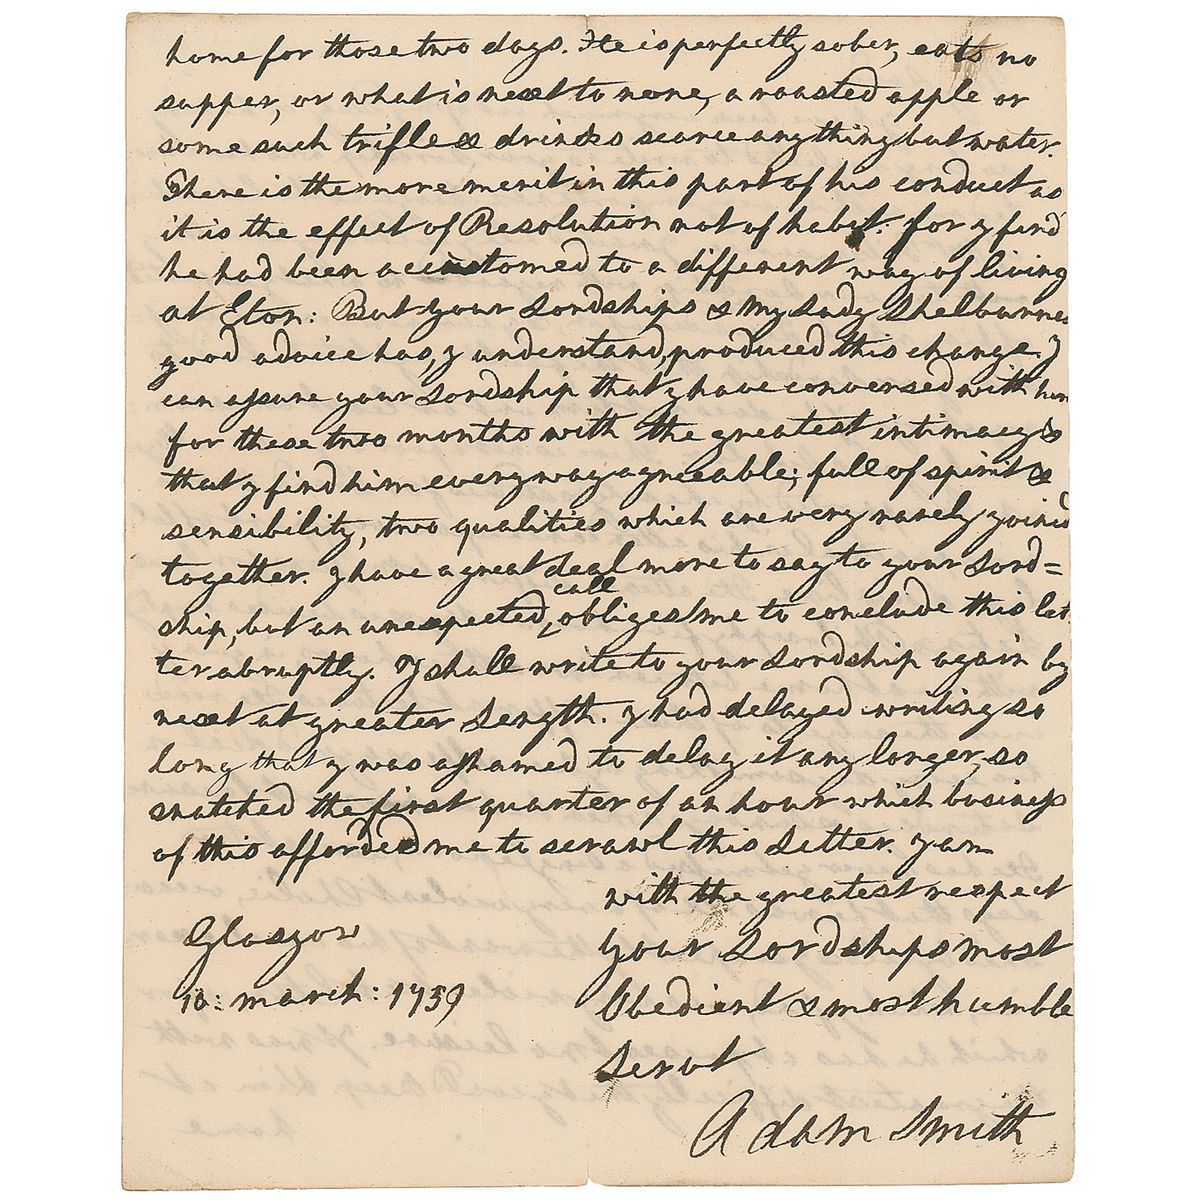 home for those two days. He is perfectly sober, eats no
supper, or what is next to none, a roasted apple or
some such trifle & drinks scarce any thing but water.
There is the more merit in this part of his conduct as
it is the effect of Resolution not of habit: for I find
he had been accustomed to a different way of living
at Eton: But your Lordships & my Lady Shelburnes
good advice has, I understand, produced this change. I
can assure your Lordship that I have conversed with him
for these two months with the greatest intimacy &
that I find him every way agreeable; full of spirit &
sensibility, two qualities which are very rarely joined
together. I have a great deal more to say to your Lord=
call
ship, but an unexpected ^ obliges me to conclude this let
ter abruptly. I shall write to your Lordship again by
next at greater Length. I had delayed writing so
long that I was ashamed to delay it any longer, so
snatched the first quarter of an hour which business
of this afforded me to scrawl this Letter. I am
with the greatest respect
Your Lordships most
Obedient & most humble
Servt
Adam Smith
Glasgow
10: march: 1759